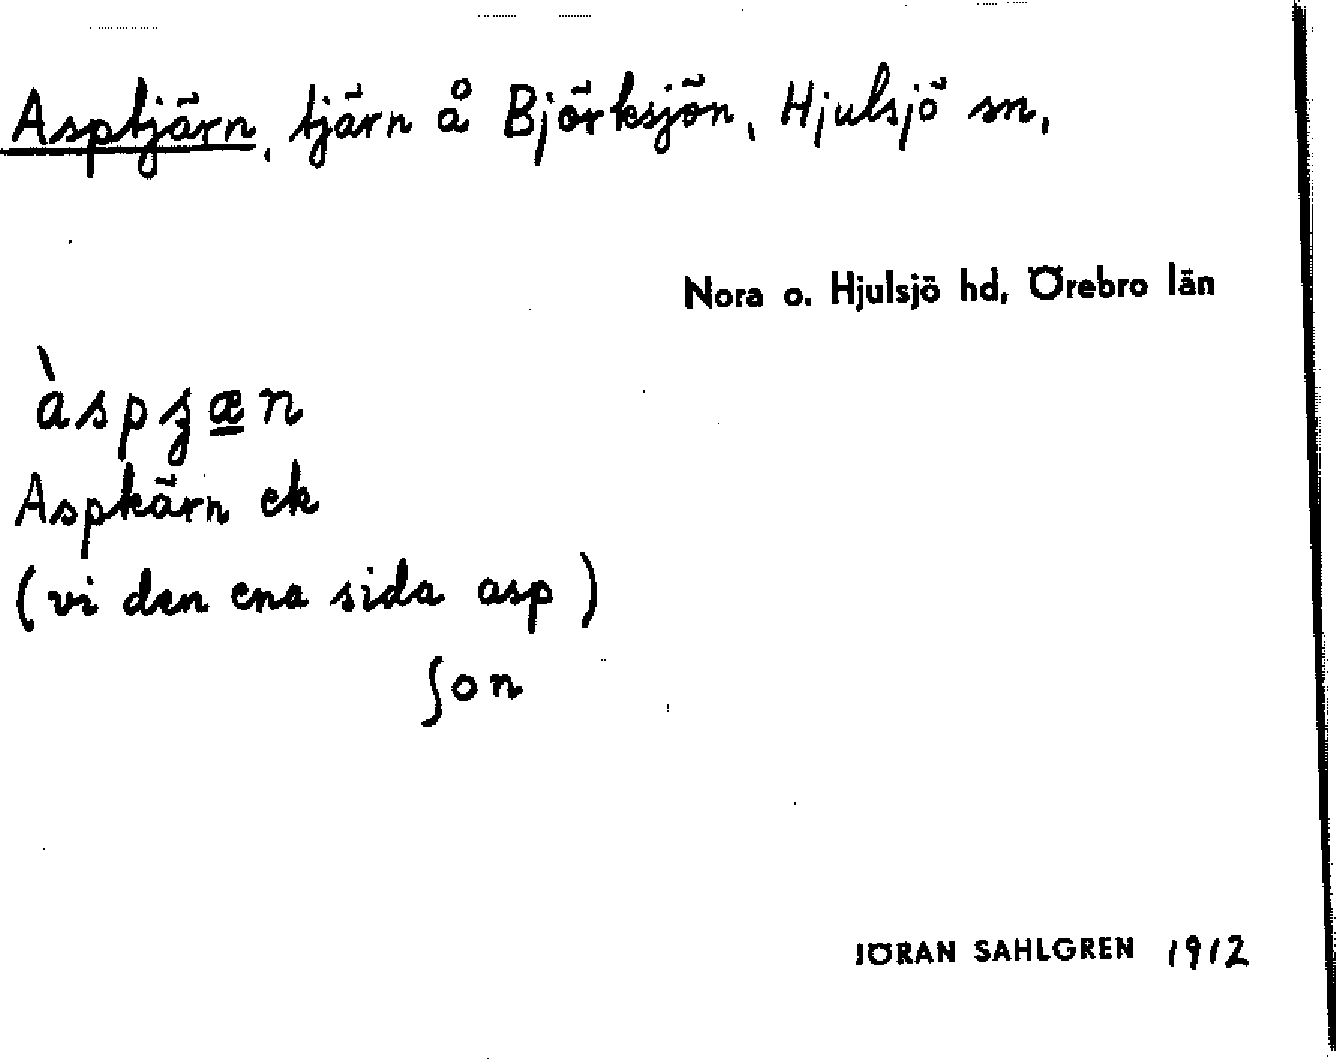 Asptjärn, tjärn å Björksjön, Hjulsjö sn,
Nora o. Hjulsjö hd, Örebro län
àspʒæn
Aspkärn ek
(vi den ena sida asp)
ʃon
JÖRAN SAHLGREN 1912